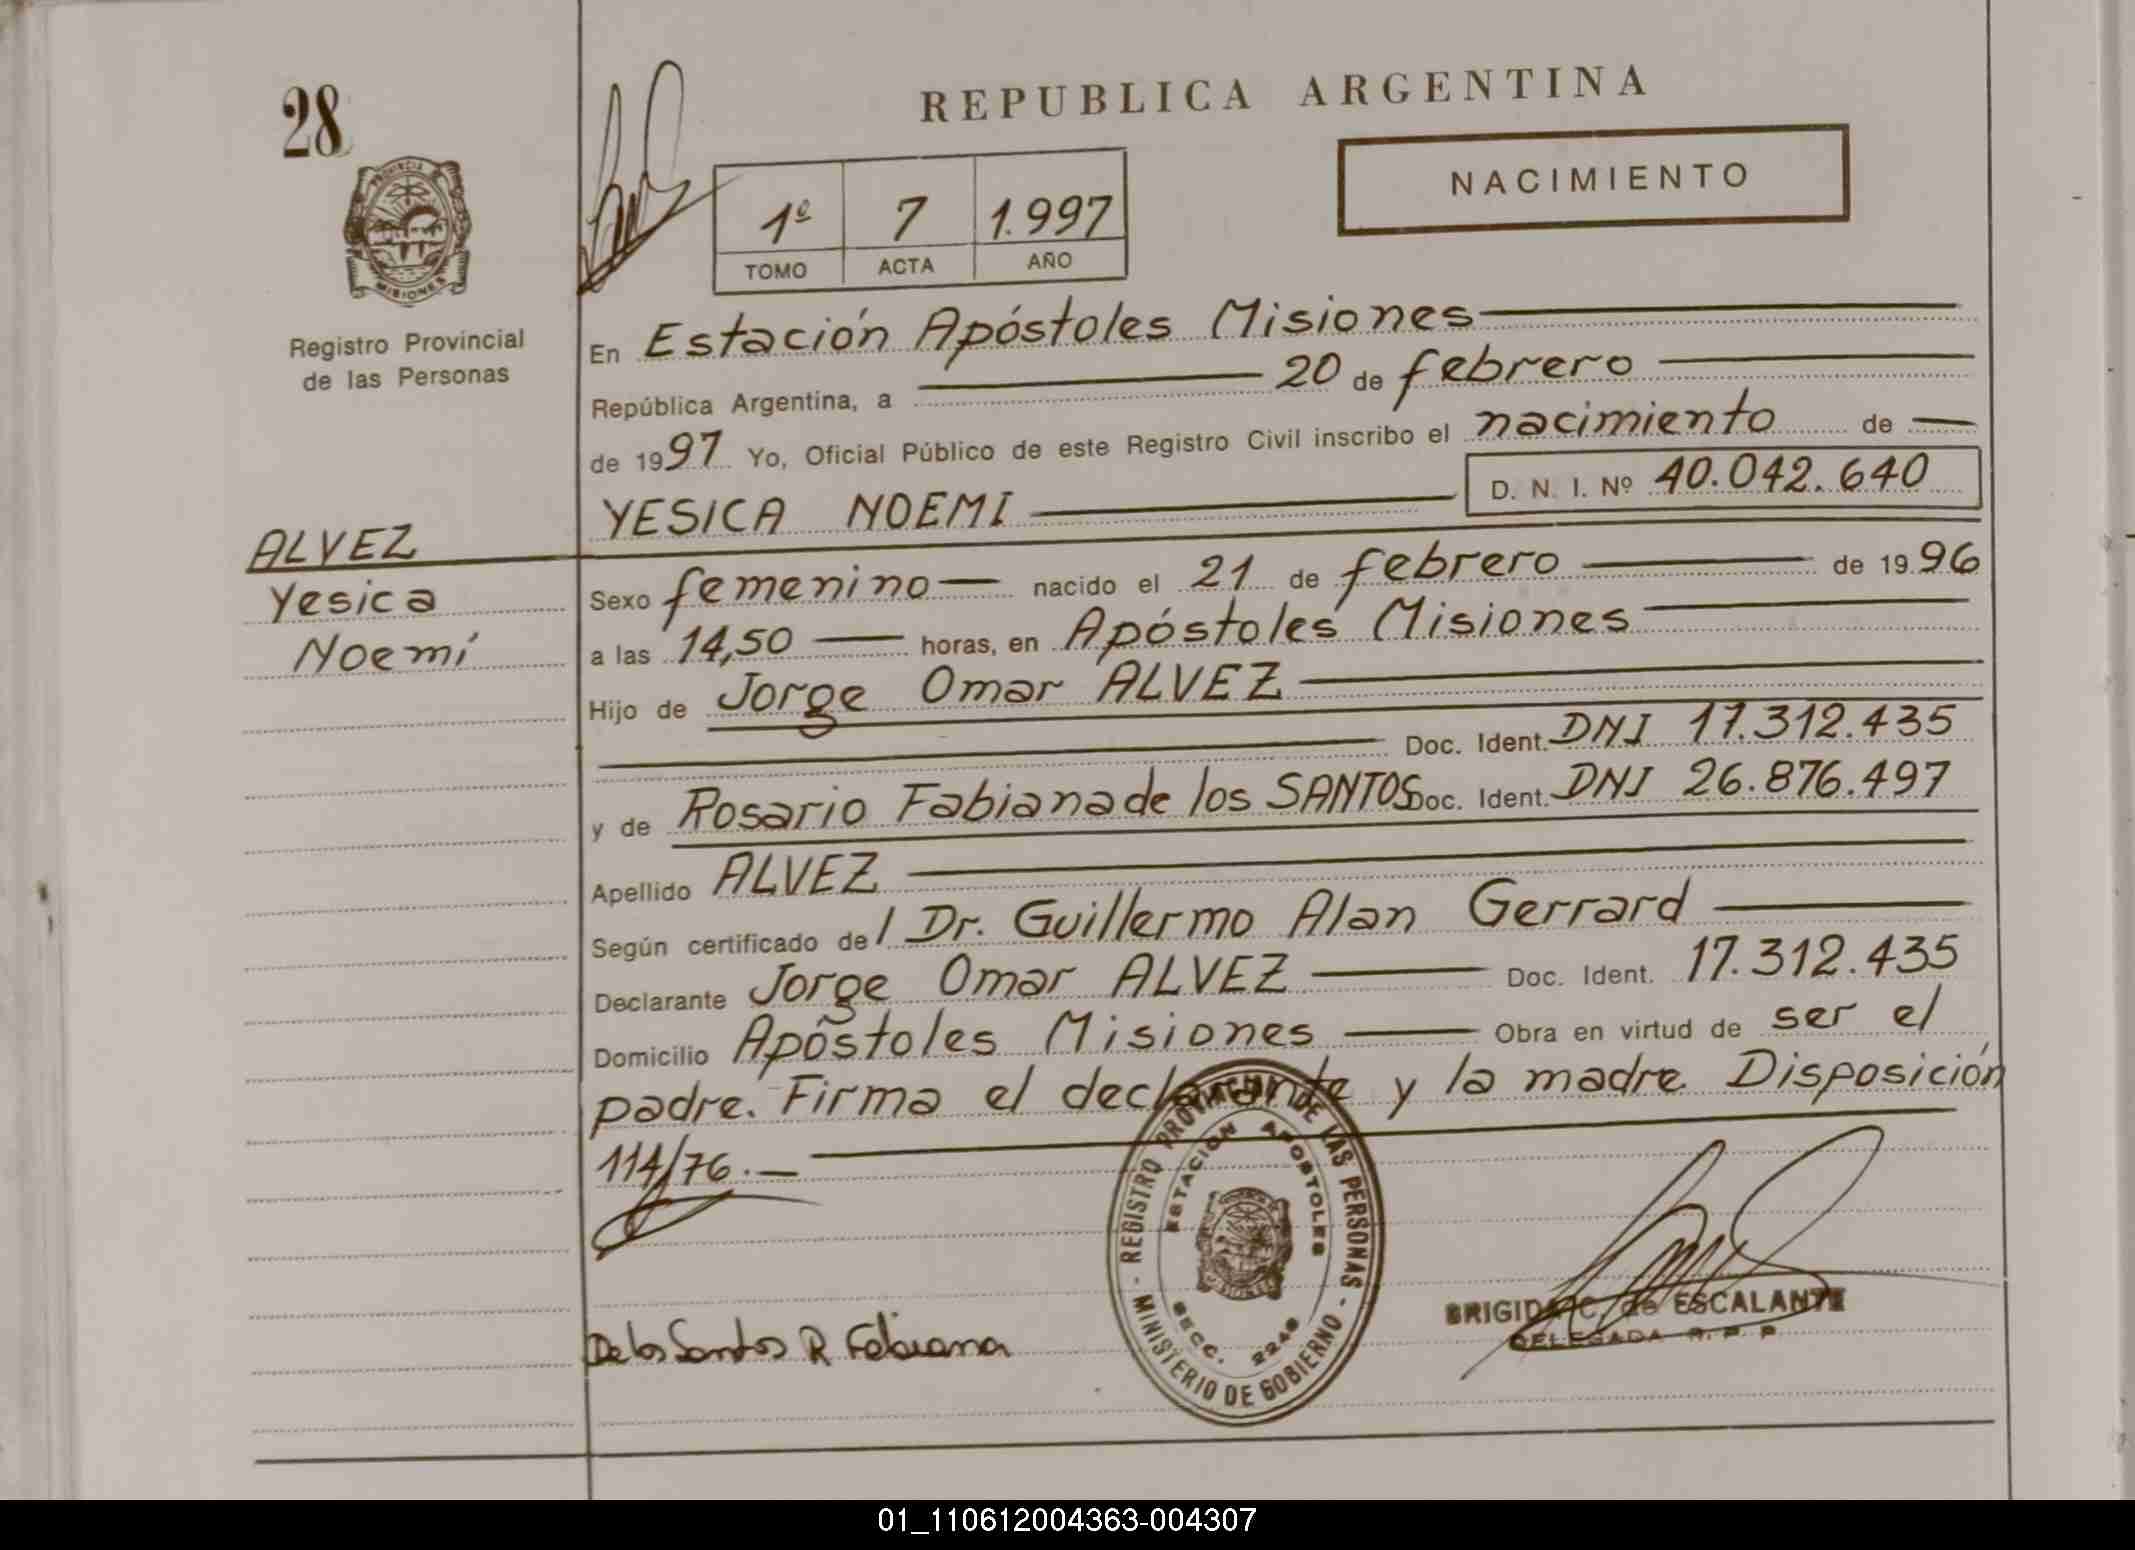 28
REPUBLICA ARGENTINA
NACIMIENTO
1º 7 1.997
TOMO ACTA AÑO
PROVINCIA
MISIONES
Registro Provincial
de las Personas
En Estación Apóstoles Misiones
República Argentina, a 20 de febrero
de 1997 Yo, Oficial Público de este Registro Civil inscribo el nacimiento de
YESICA NOEMI D. N. I. Nº 40.042.640
ALVEZ
Yesica
Noemí
Sexo femenino nacido el 21 de febrero de 1996
a las 14,50 horas, en Apóstoles Misiones
Hijo de Jorge Omar ALVEZ
Doc. Ident. DNI 17.312.435
y de Rosario Fabiana de los SANTOS Doc. Ident. DNI 26.876.497
Apellido ALVEZ
Según certificado de l Dr. Guillermo Alan Gerrard
Declarante Jorge Omar ALVEZ Doc. Ident. 17.312.435
Domicilio Apóstoles Misiones Obra en virtud de ser el
padre. Firma el declarante y la madre. Disposición
114/76.-
REGISTRO PROVINCIAL DE LAS PERSONAS - MINISTERIO DE GOBIERNO -
ESTACION APOSTOLES
SECC. 2246
De los Santos R Fabiana
BRIGIDA C. de ESCALANTE
DELEGADA R. P. P.
01_110612004363-004307